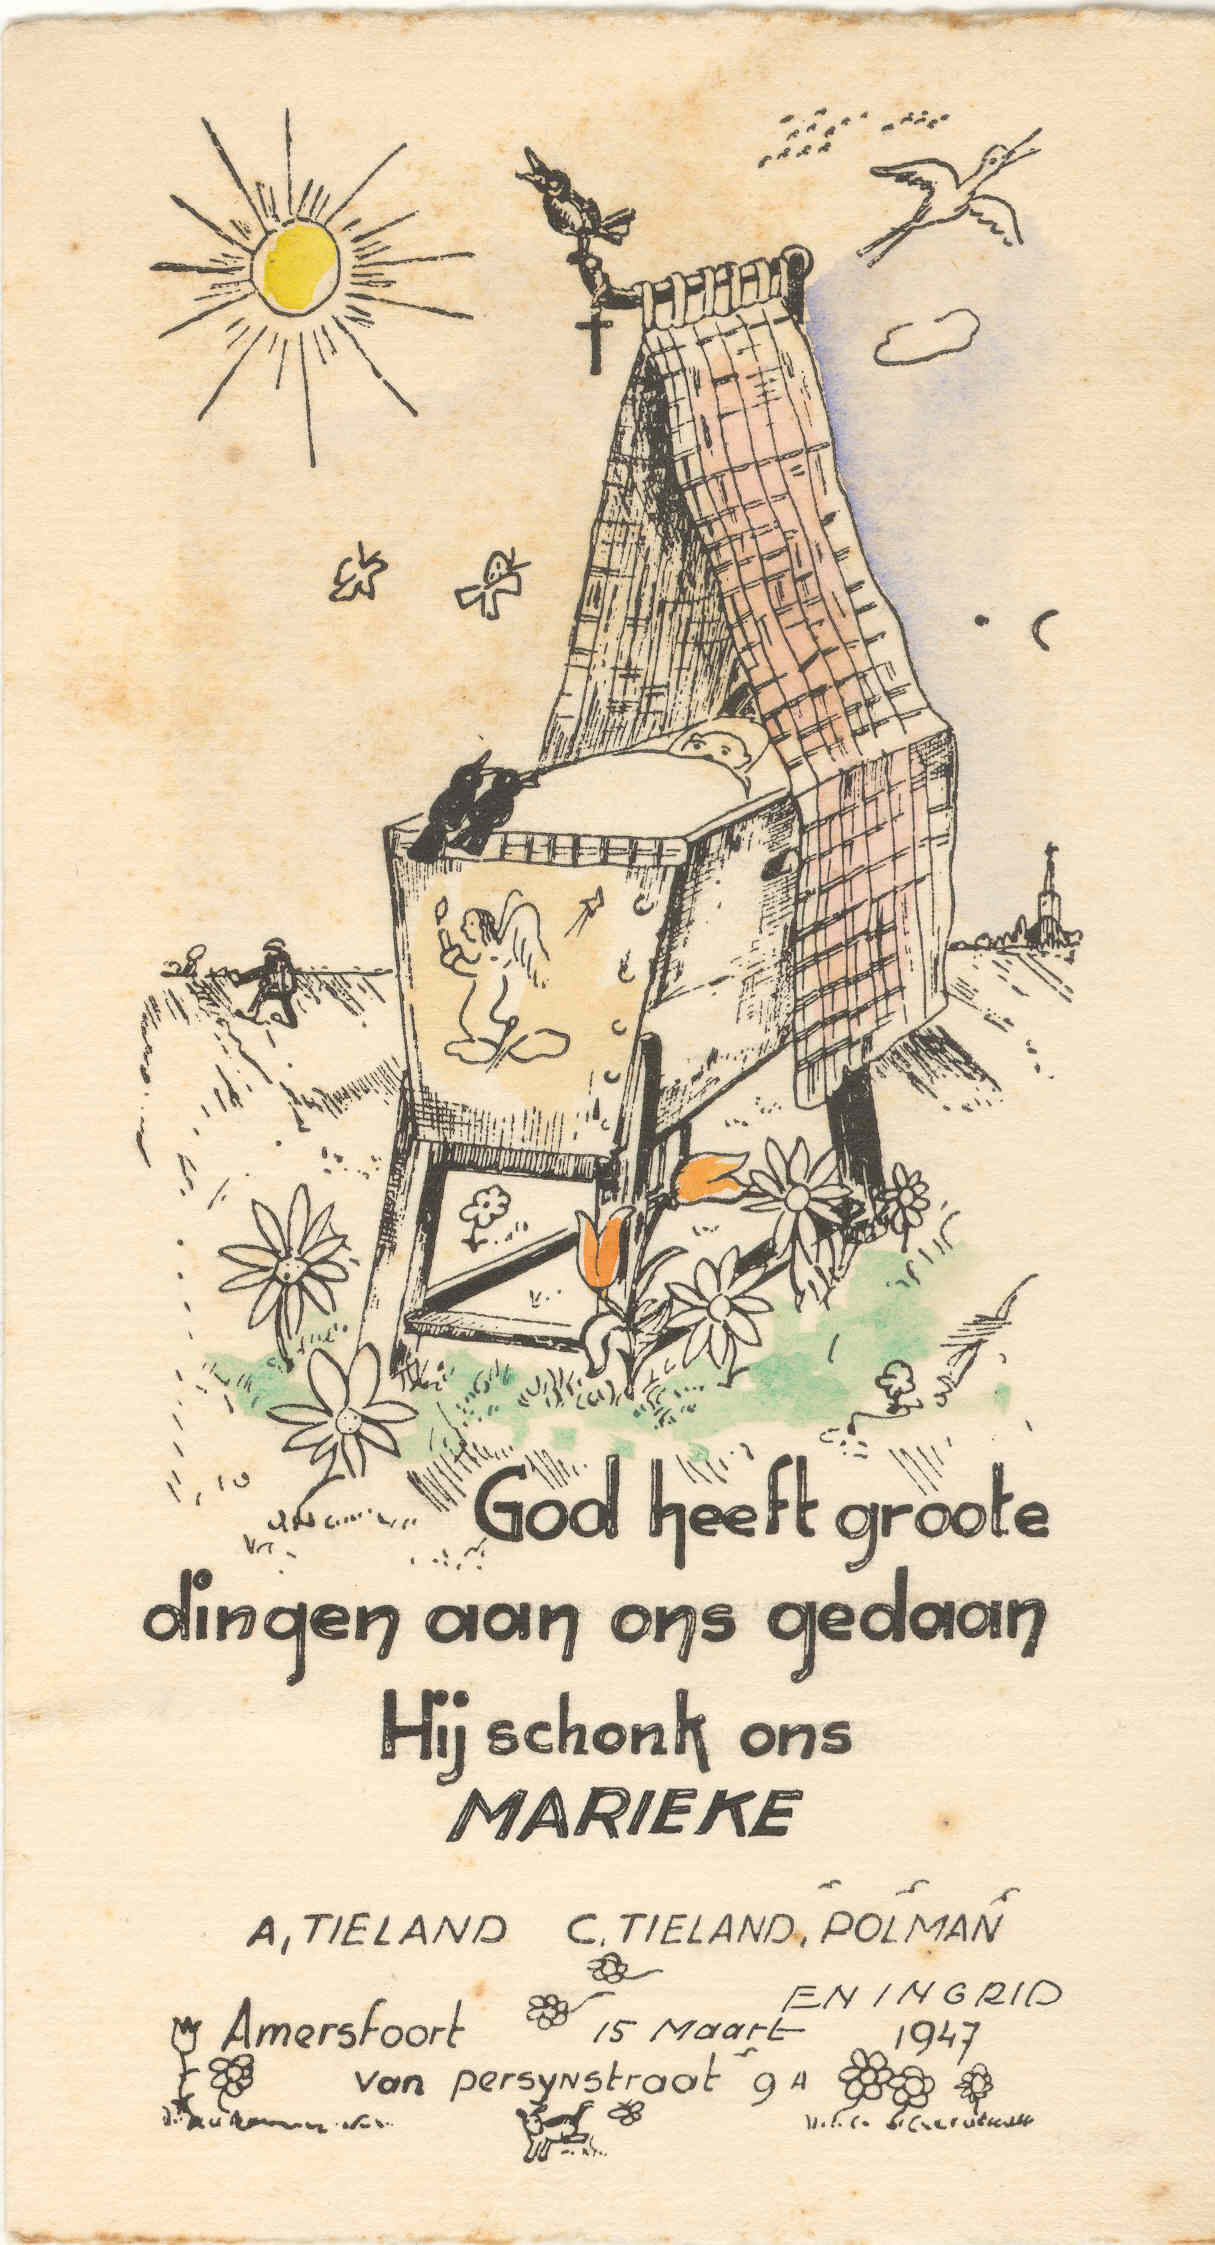 God heeft groote
dingen aan ons gedaan
Hij schonk ons
MARIEKE
A, TIELAND C. TIELAND, POLMAN
EN INGRID
Amersfoort 15 Maart 1947
van persynstraat 9 A